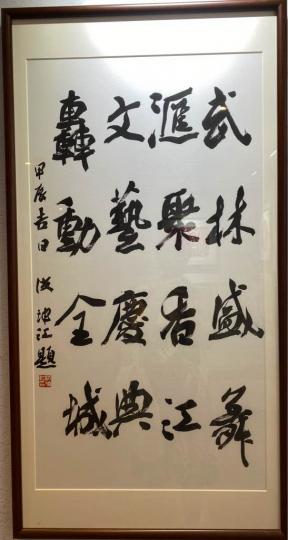 武林盛舞
滙聚香江
文藝慶典
轟動全城
甲辰吉日
江題